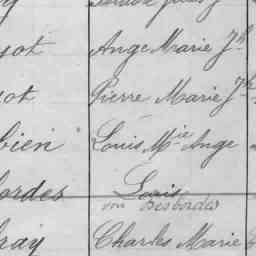 Ange Marie Jh
Pierre Marie Jh
bien Louis Mie Ange
bordes Louis
voir Desbordes
Charles Marie